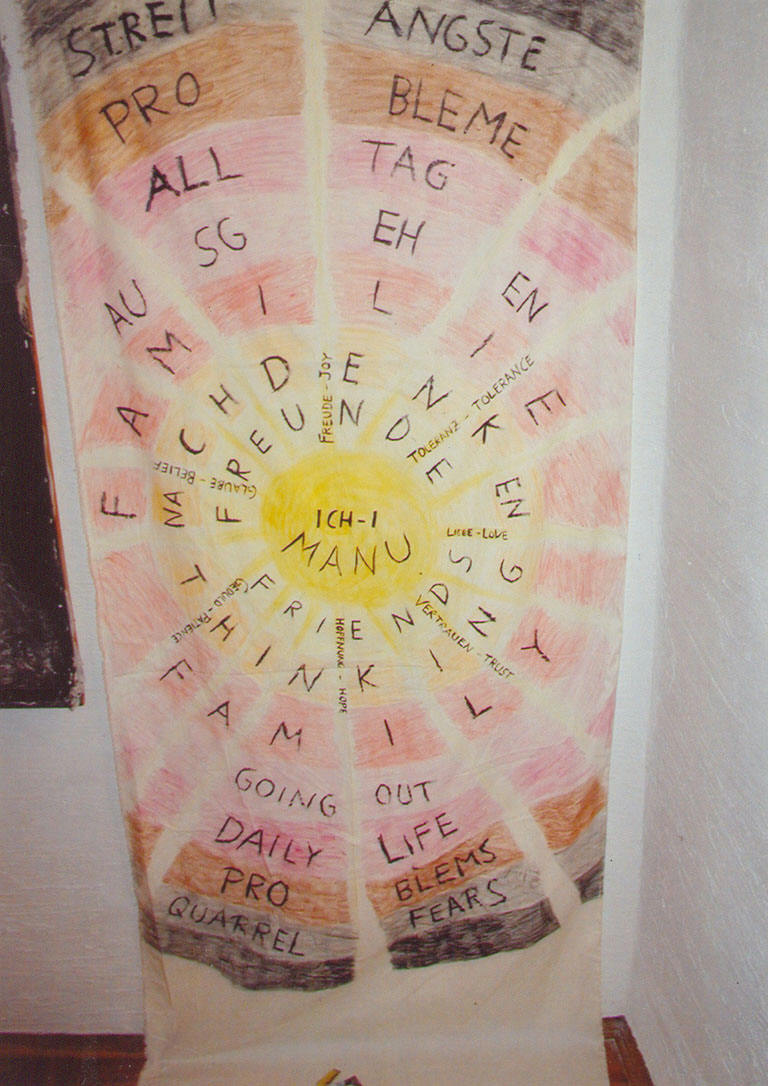 STREIT ÄNGSTE
PRO BLEME
ALL TAG
AUSG EHEN
FAMILIE
NACHDENKEN
FREUNDE
FREUDE - JOY
TOLERANZ - TOLERANCE
GLAUBE - BELIEF
LIEBE - LOVE
ICH - I
MANU
GEDULD - PATIENCE
HOFFNUNG - HOPE
VERTRAUEN - TRUST
FRIENDS
THINKING
FAMILY
GOING OUT
DAILY LIFE
PRO BLEMS
QUARREL FEARS